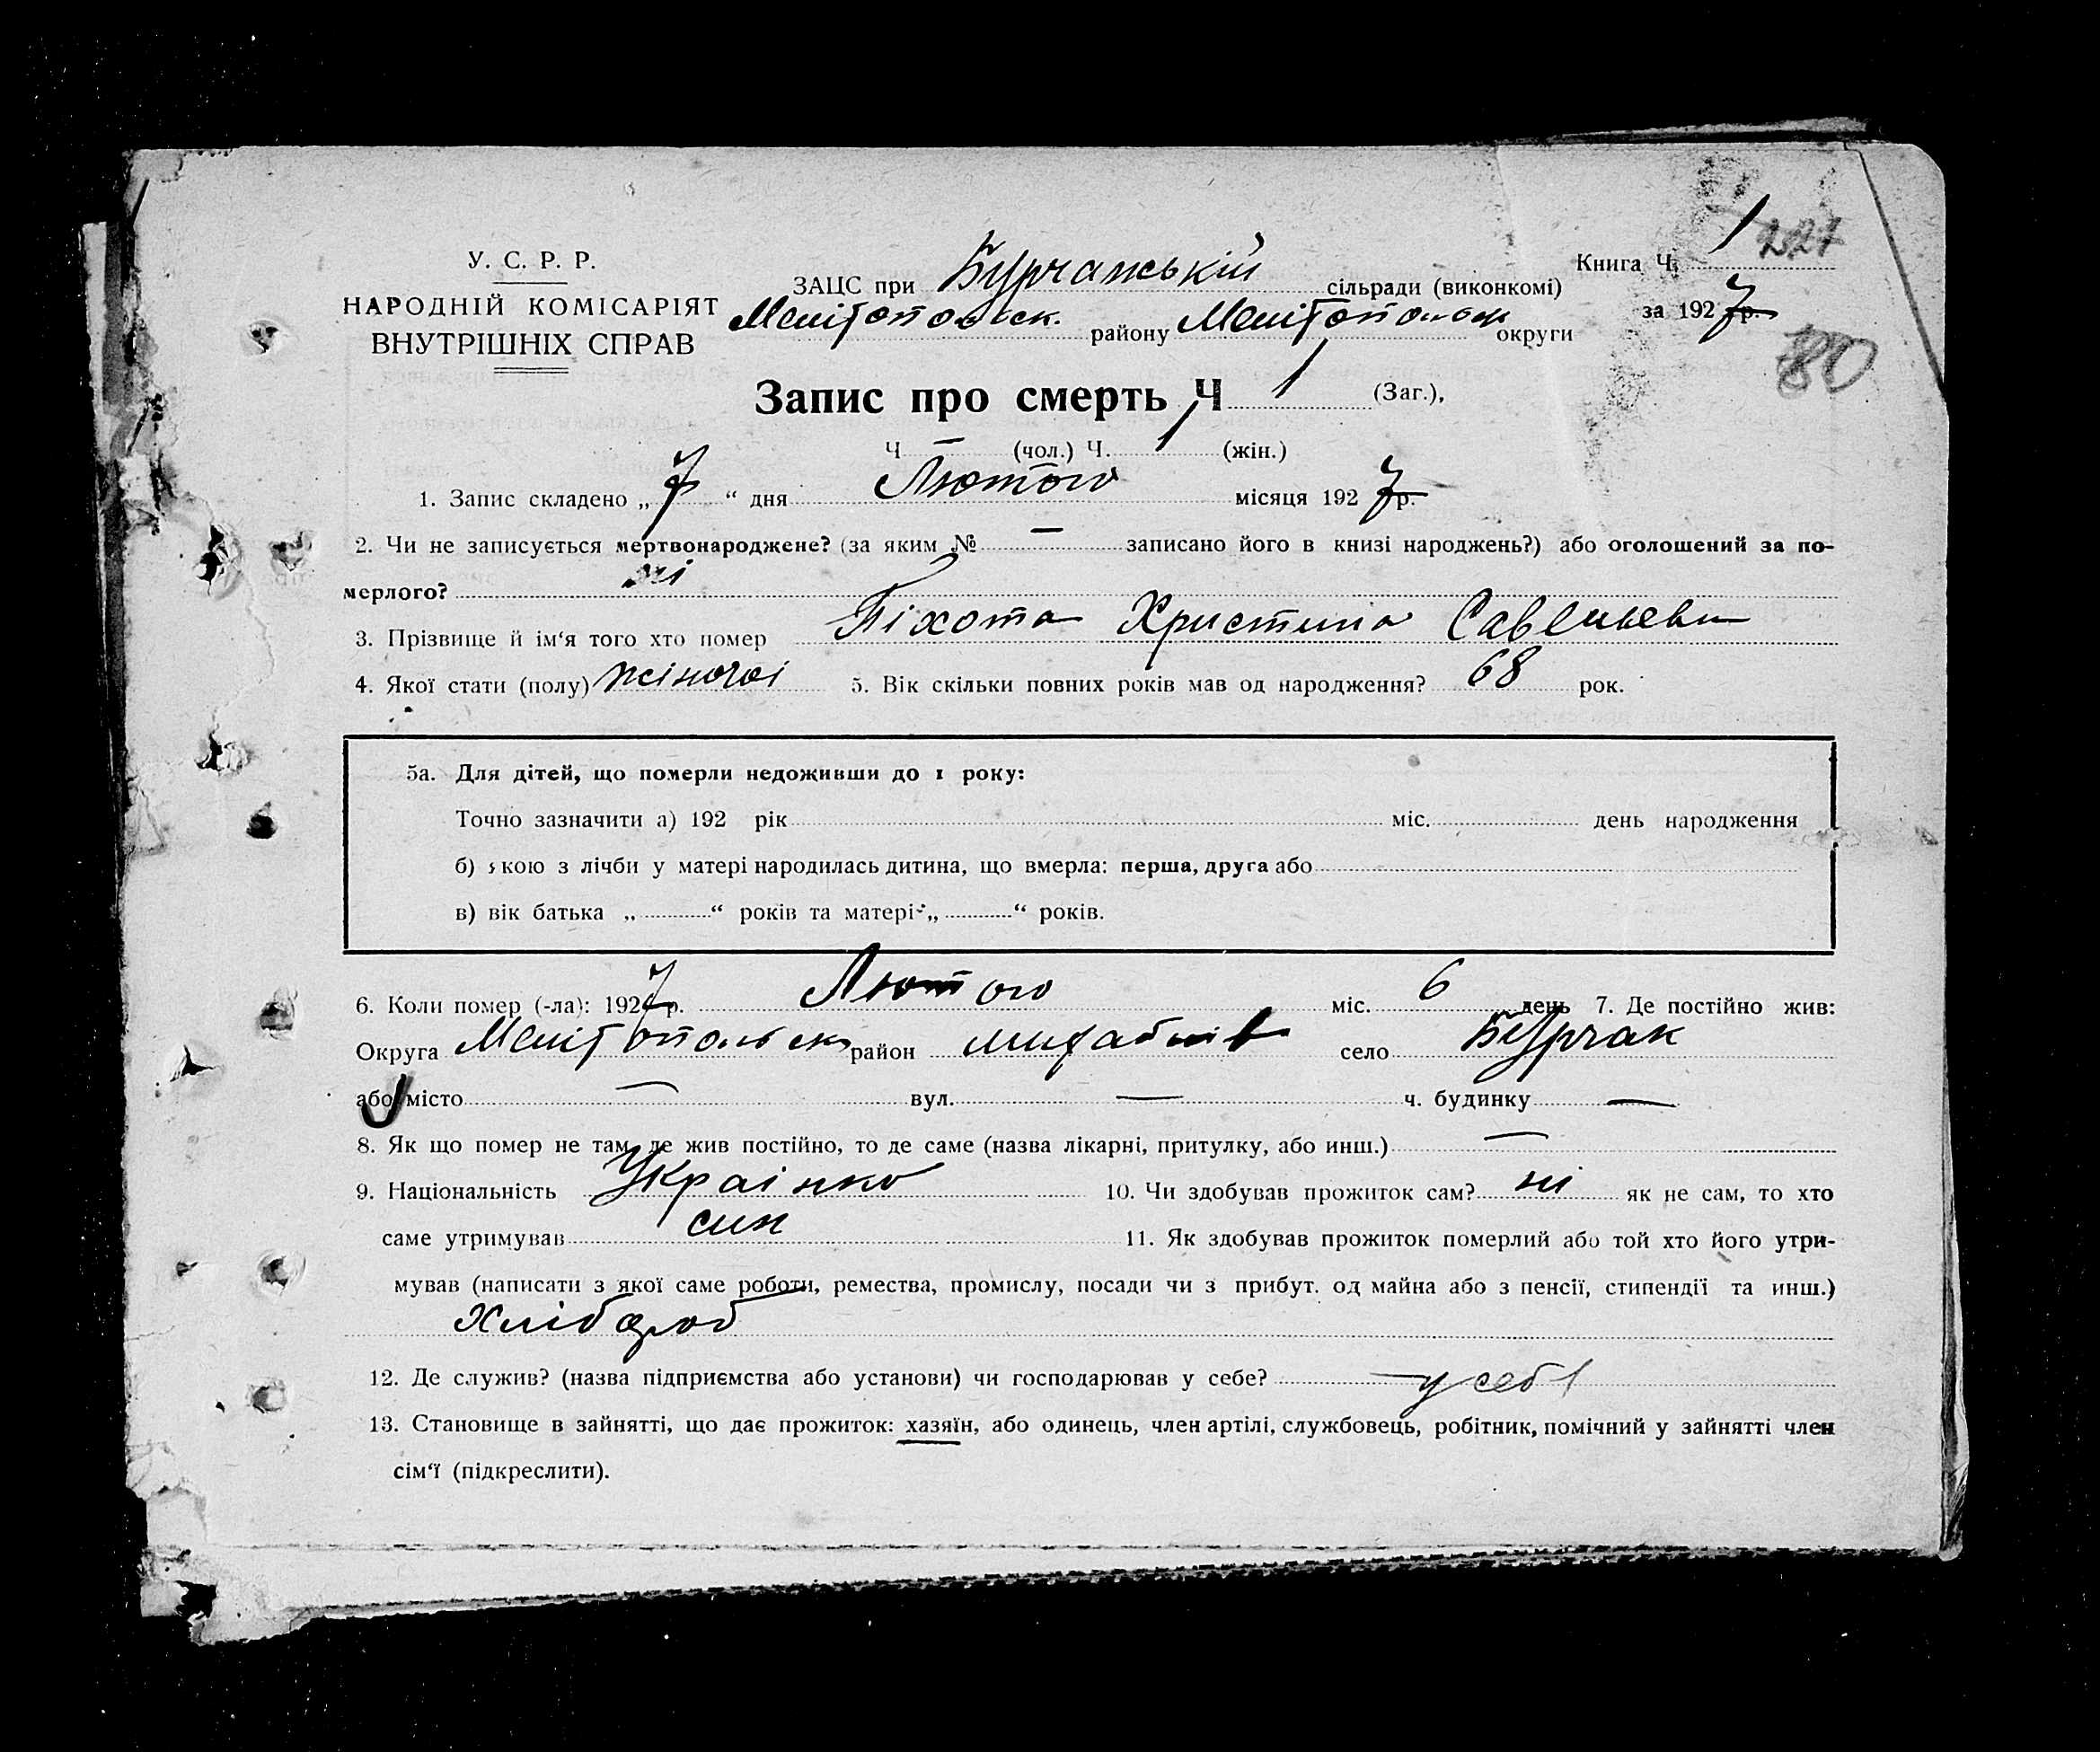 У. С. Р. Р.
НАРОДНІЙ КОМІСАРІЯТ
ВНУТРІШНІХ СПРАВ
ЗАЦС при Бурчанській сільради (виконкомі)
Мелітопольск. району Мелітопольск округи
Книга Ч. 1 227
за 1927 р.
80
Запис про смерть Ч 1 (Заг.),
Ч — (чол.) Ч. 1 (жін.)
1. Запис складено „ 7 “ дня Лютого місяця 1927 р.
2. Чи не записується мертвонароджене? (за яким № — записано його в книзі народжень?) або оголошений за по-
мерлого? ні
3. Прізвище й ім‘я того хто помер Піхота Христина Савельевн
4. Якої стати (полу) жіночої 5. Вік скільки повних років мав од народження? 68 рок.
5а. Для дітей, що померли недоживши до 1 року:
Точно зазначити а) 192 рік міс. день народження
б) якою з лічби у матері народилась дитина, що вмерла: перша, друга або
в) вік батька „ “ років та матері „ “ років.
6. Коли помер (-ла): 1927 р. Лютого міс. 6 день 7. Де постійно жив:
Округа Мелітопольск район село Бурчак
або місто — вул. — ч. будинку —
8. Як що помер не там, де жив постійно, то де саме (назва лікарні, притулку, або инш.) —
9. Національність Украінка 10. Чи здобував прожиток сам? ні як не сам, то хто
саме утримував син 11. Як здобував прожиток померлий або той хто його утри-
мував (написати з якої саме роботи, ремества, промислу, посади чи з прибут. од майна або з пенсії, стипендії та инш.)
Хлібороб
12. Де служив? (назва підприємства або установи) чи господарював у себе? у себе
13. Становище в зайнятті, що дає прожиток: хазяїн, або одинець, член артілі, службовець, робітник, помічний у зайнятті член
сім‘ї (підкреслити).